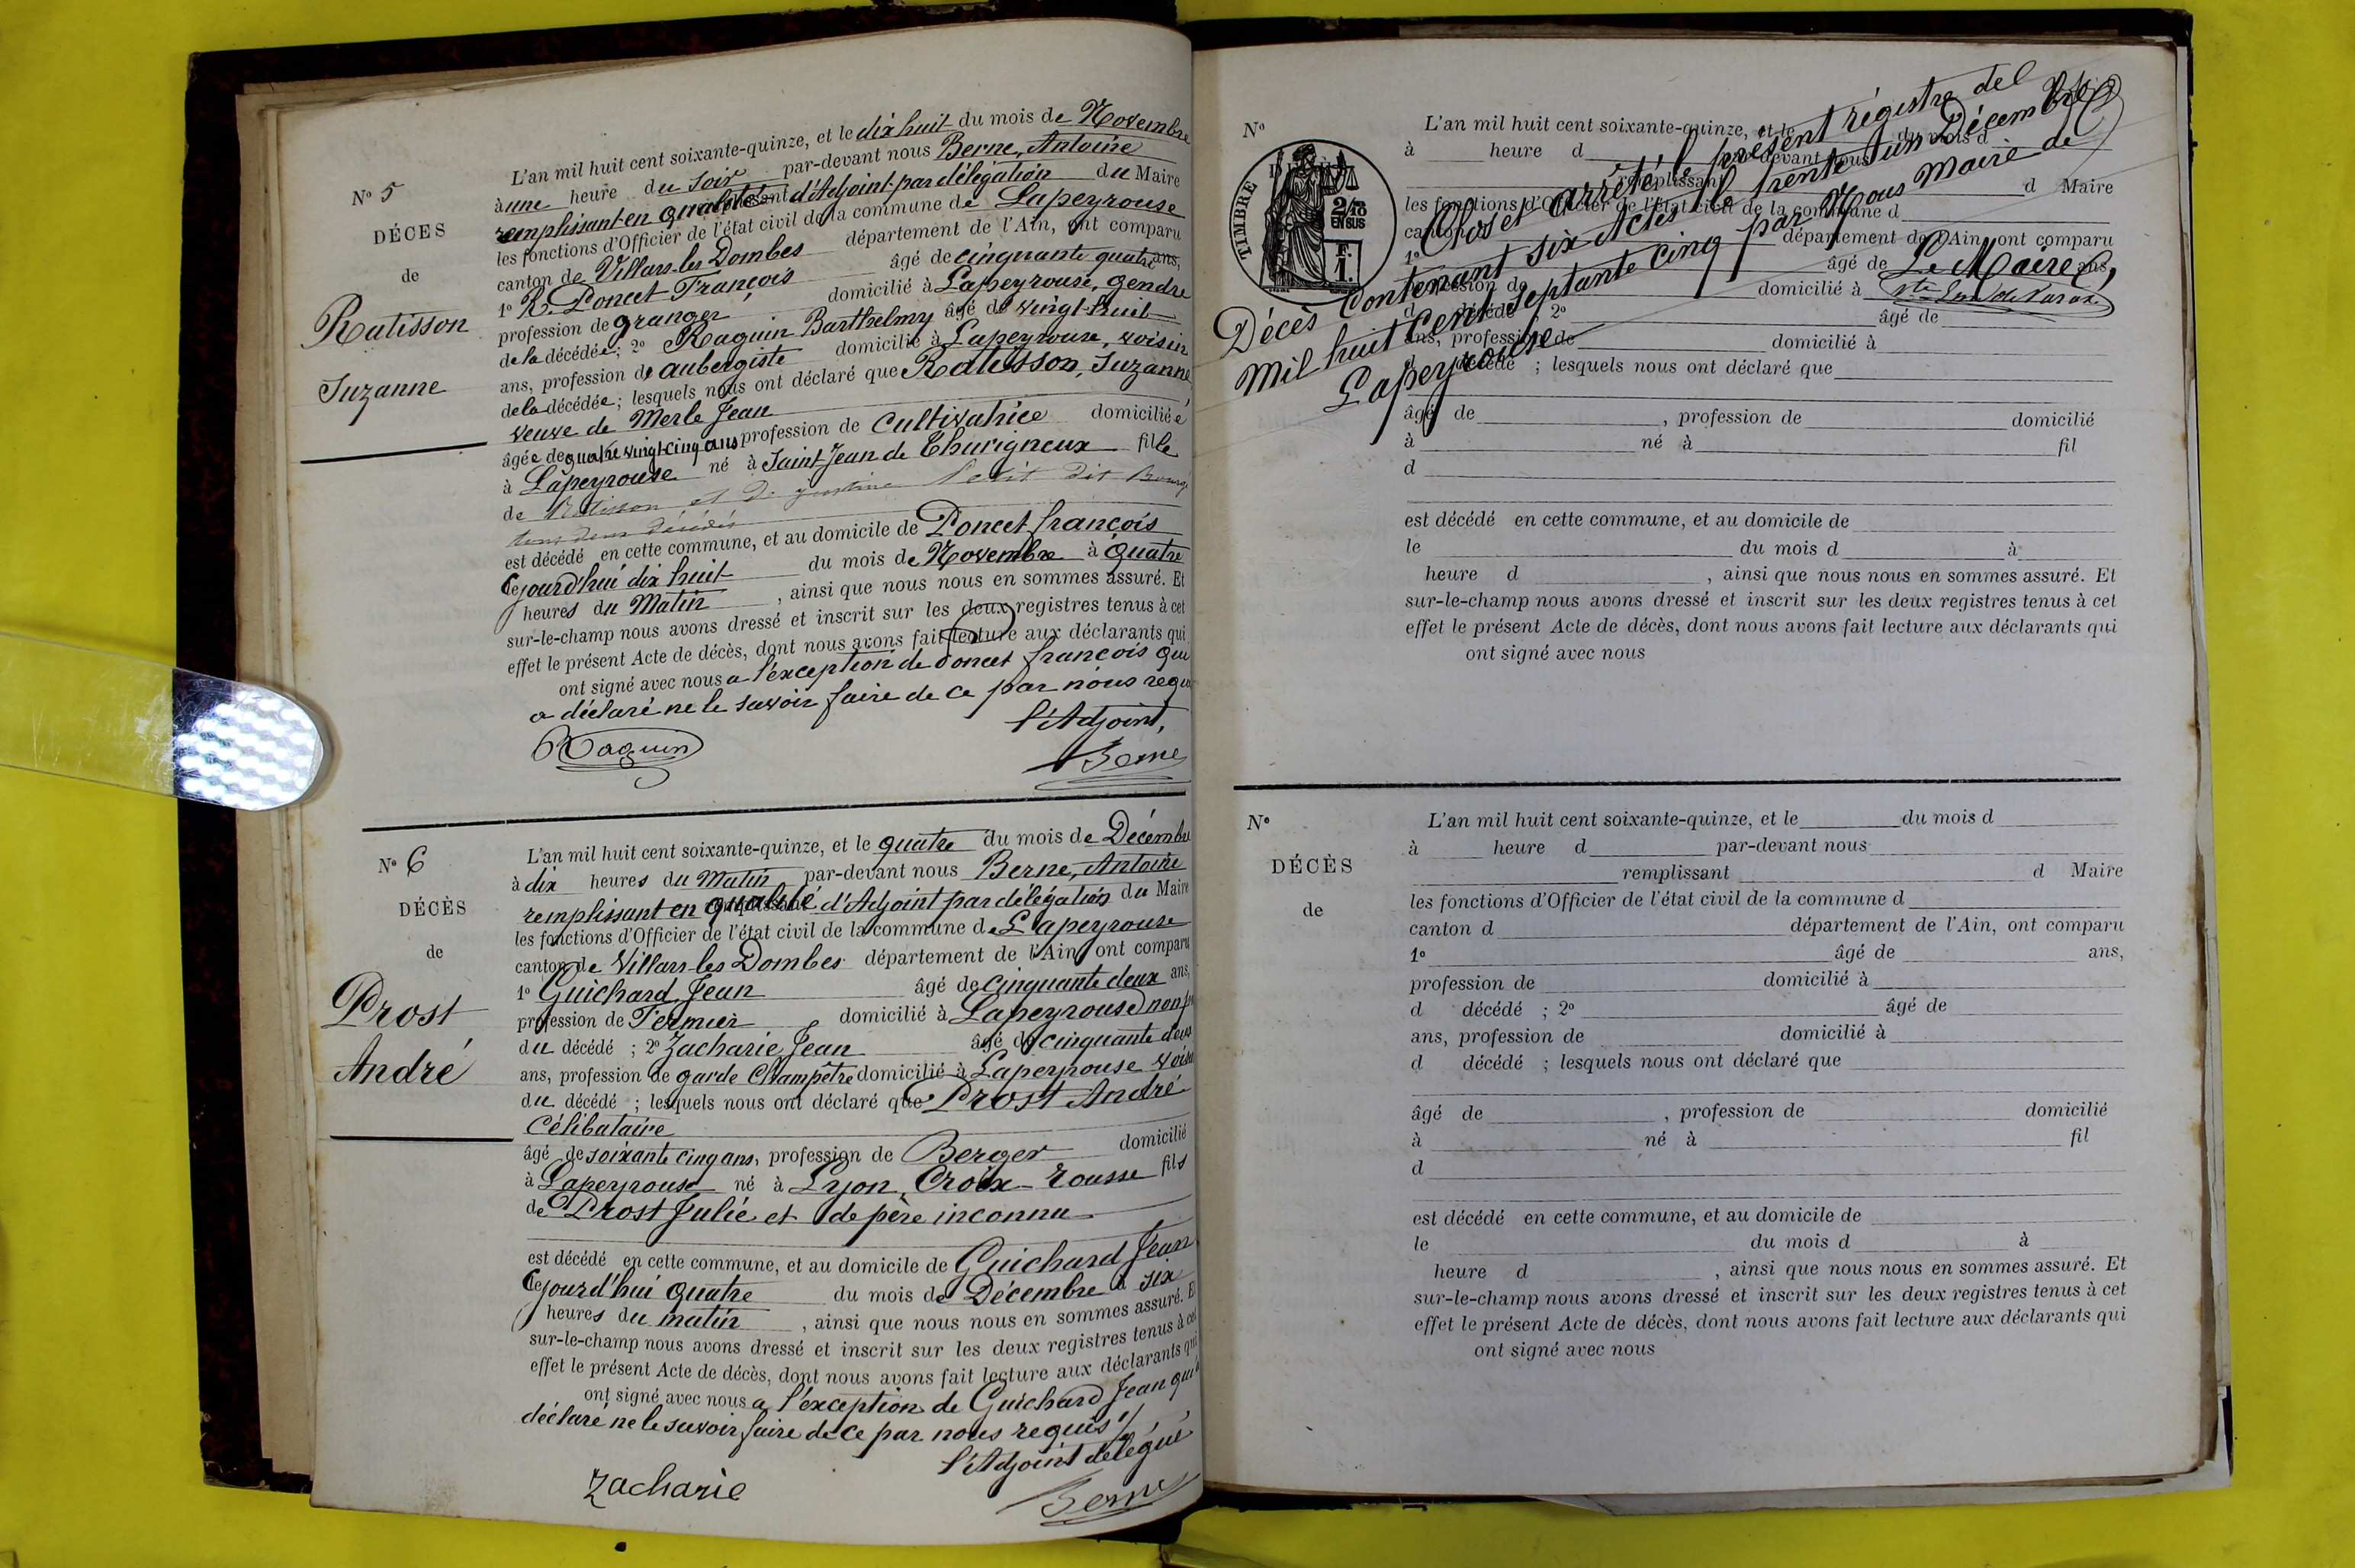 N° 5
DÉCES
de
Ratisson
Suzanne
L'an mil huit cent soixante-quinze, et le dix huit du mois de Novembre
à une heure du Soir par-devant nous Berne, Antoine
remplissant en qualité d'Adjoint par délégation du Maire
les fonctions d'Officier de l'état civil de la commune de Lapeyrouse
canton de Villars-les Dombes département de l'Ain, ont comparu
1° Poncet François âgé de cinquante quatre ans,
profession de granger domicilié à Lapeyrouse, gendre
de la décédée ; 2° Raquin Barthelmy âgé de vingt-huit
ans, profession de aubergiste domicilié à Lapeyrouse, voisin
de la décédée ; lesquels nous ont déclaré que Ratisson, Suzanne,
veuve de Merle Jean
âgée de quatre vingt-cinq ans profession de Cultivatrice domiciliée
à Lapeyrouse né à Saint Jean de Thurigneux fille
de Ratisson et de Petit dit
tous deux décédés
est décédé en cette commune, et au domicile de Poncet françois
Cejourd'hui dix huit du mois de Novembre à Quatre
heures du Matin , ainsi que nous nous en sommes assuré. Et
sur-le-champ nous avons dressé et inscrit sur les deux registres tenus à cet
effet le présent Acte de décès, dont nous avons fait lecture aux déclarants qui
ont signé avec nous a l'éxception de Poncet françois qui
a déclaré ne le savoir faire de ce par nous requis
l'Adjoint,
Raquin
Berne
N° 6
DÉCÈS
de
Prost
André
L'an mil huit cent soixante-quinze, et le quatre du mois de Décembre
à dix heures du Matin par-devant nous Berne, Antoine
remplissant en qualité d'Adjoint par délégation du Maire
les fonctions d'Officier de l'état civil de la commune de Lapeyrouse
canton de Villars-les Dombes département de l'Ain, ont comparu
1° Guichard Jean âgé de cinquante deux ans,
profession de Fermier domicilié à Lapeyrouse non p
du décédé ; 2° Zacharie Jean âgé de cinquante deux
ans, profession de garde Champêtre domicilié à Lapeyrouse voisin
du décédé ; lesquels nous ont déclaré que Prost André
Célibataire
âgé de soixante cinq ans, profession de Berger domicilié
à Lapeyrouse né à Lyon, Croix-rousse fils
de Prost Julie et de père inconnu
est décédé en cette commune, et au domicile de Guichard Jean
Cejourd'hui Quatre du mois de Décembre à six
heures du matin , ainsi que nous nous en sommes assuré. Et
sur-le-champ nous avons dressé et inscrit sur les deux registres tenus à cet
effet le présent Acte de décès, dont nous avons fait lecture aux déclarants qui
ont signé avec nous a l'éxception de Guichard Jean qui a
déclaré ne le savoir faire de ce par nous requis
l'Adjoint délégué
Zacharie
Berne
N°
TIMBRE
2/10
EN SUS
F.
1.
L'an mil huit cent soixante-quinze, et le du mois d
à heure d par-devant nous
remplissant d Maire
les fonctions d'Officier de l'état civil de la commune d
canton d département de l'Ain, ont comparu
1° âgé de ans,
profession de domicilié à
d décédé ; 2° âgé de
ans, profession de domicilié à
d décédé ; lesquels nous ont déclaré que
Clos et arrêté le présent régistre de
Décès contenant six Actes le trente-un Décembre
mil huit cent septante cinq par Nous Maire de
Lapeyrouse
Le Maire,
âgé de , profession de domicilié
à né à fil
d
est décédé en cette commune, et au domicile de
le du mois d à
heure d , ainsi que nous nous en sommes assuré. Et
sur-le-champ nous avons dressé et inscrit sur les deux registres tenus à cet
effet le présent Acte de décès, dont nous avons fait lecture aux déclarants qui
ont signé avec nous
N°
DÉCÈS
de
L'an mil huit cent soixante-quinze, et le du mois d
à heure d par-devant nous
remplissant d Maire
les fonctions d'Officier de l'état civil de la commune d
canton d département de l'Ain, ont comparu
1° âgé de ans,
profession de domicilié à
d décédé ; 2° âgé de
ans, profession de domicilié à
d décédé ; lesquels nous ont déclaré que
âgé de , profession de domicilié
à né à fil
d
est décédé en cette commune, et au domicile de
le du mois d à
heure d , ainsi que nous nous en sommes assuré. Et
sur-le-champ nous avons dressé et inscrit sur les deux registres tenus à cet
effet le présent Acte de décès, dont nous avons fait lecture aux déclarants qui
ont signé avec nous